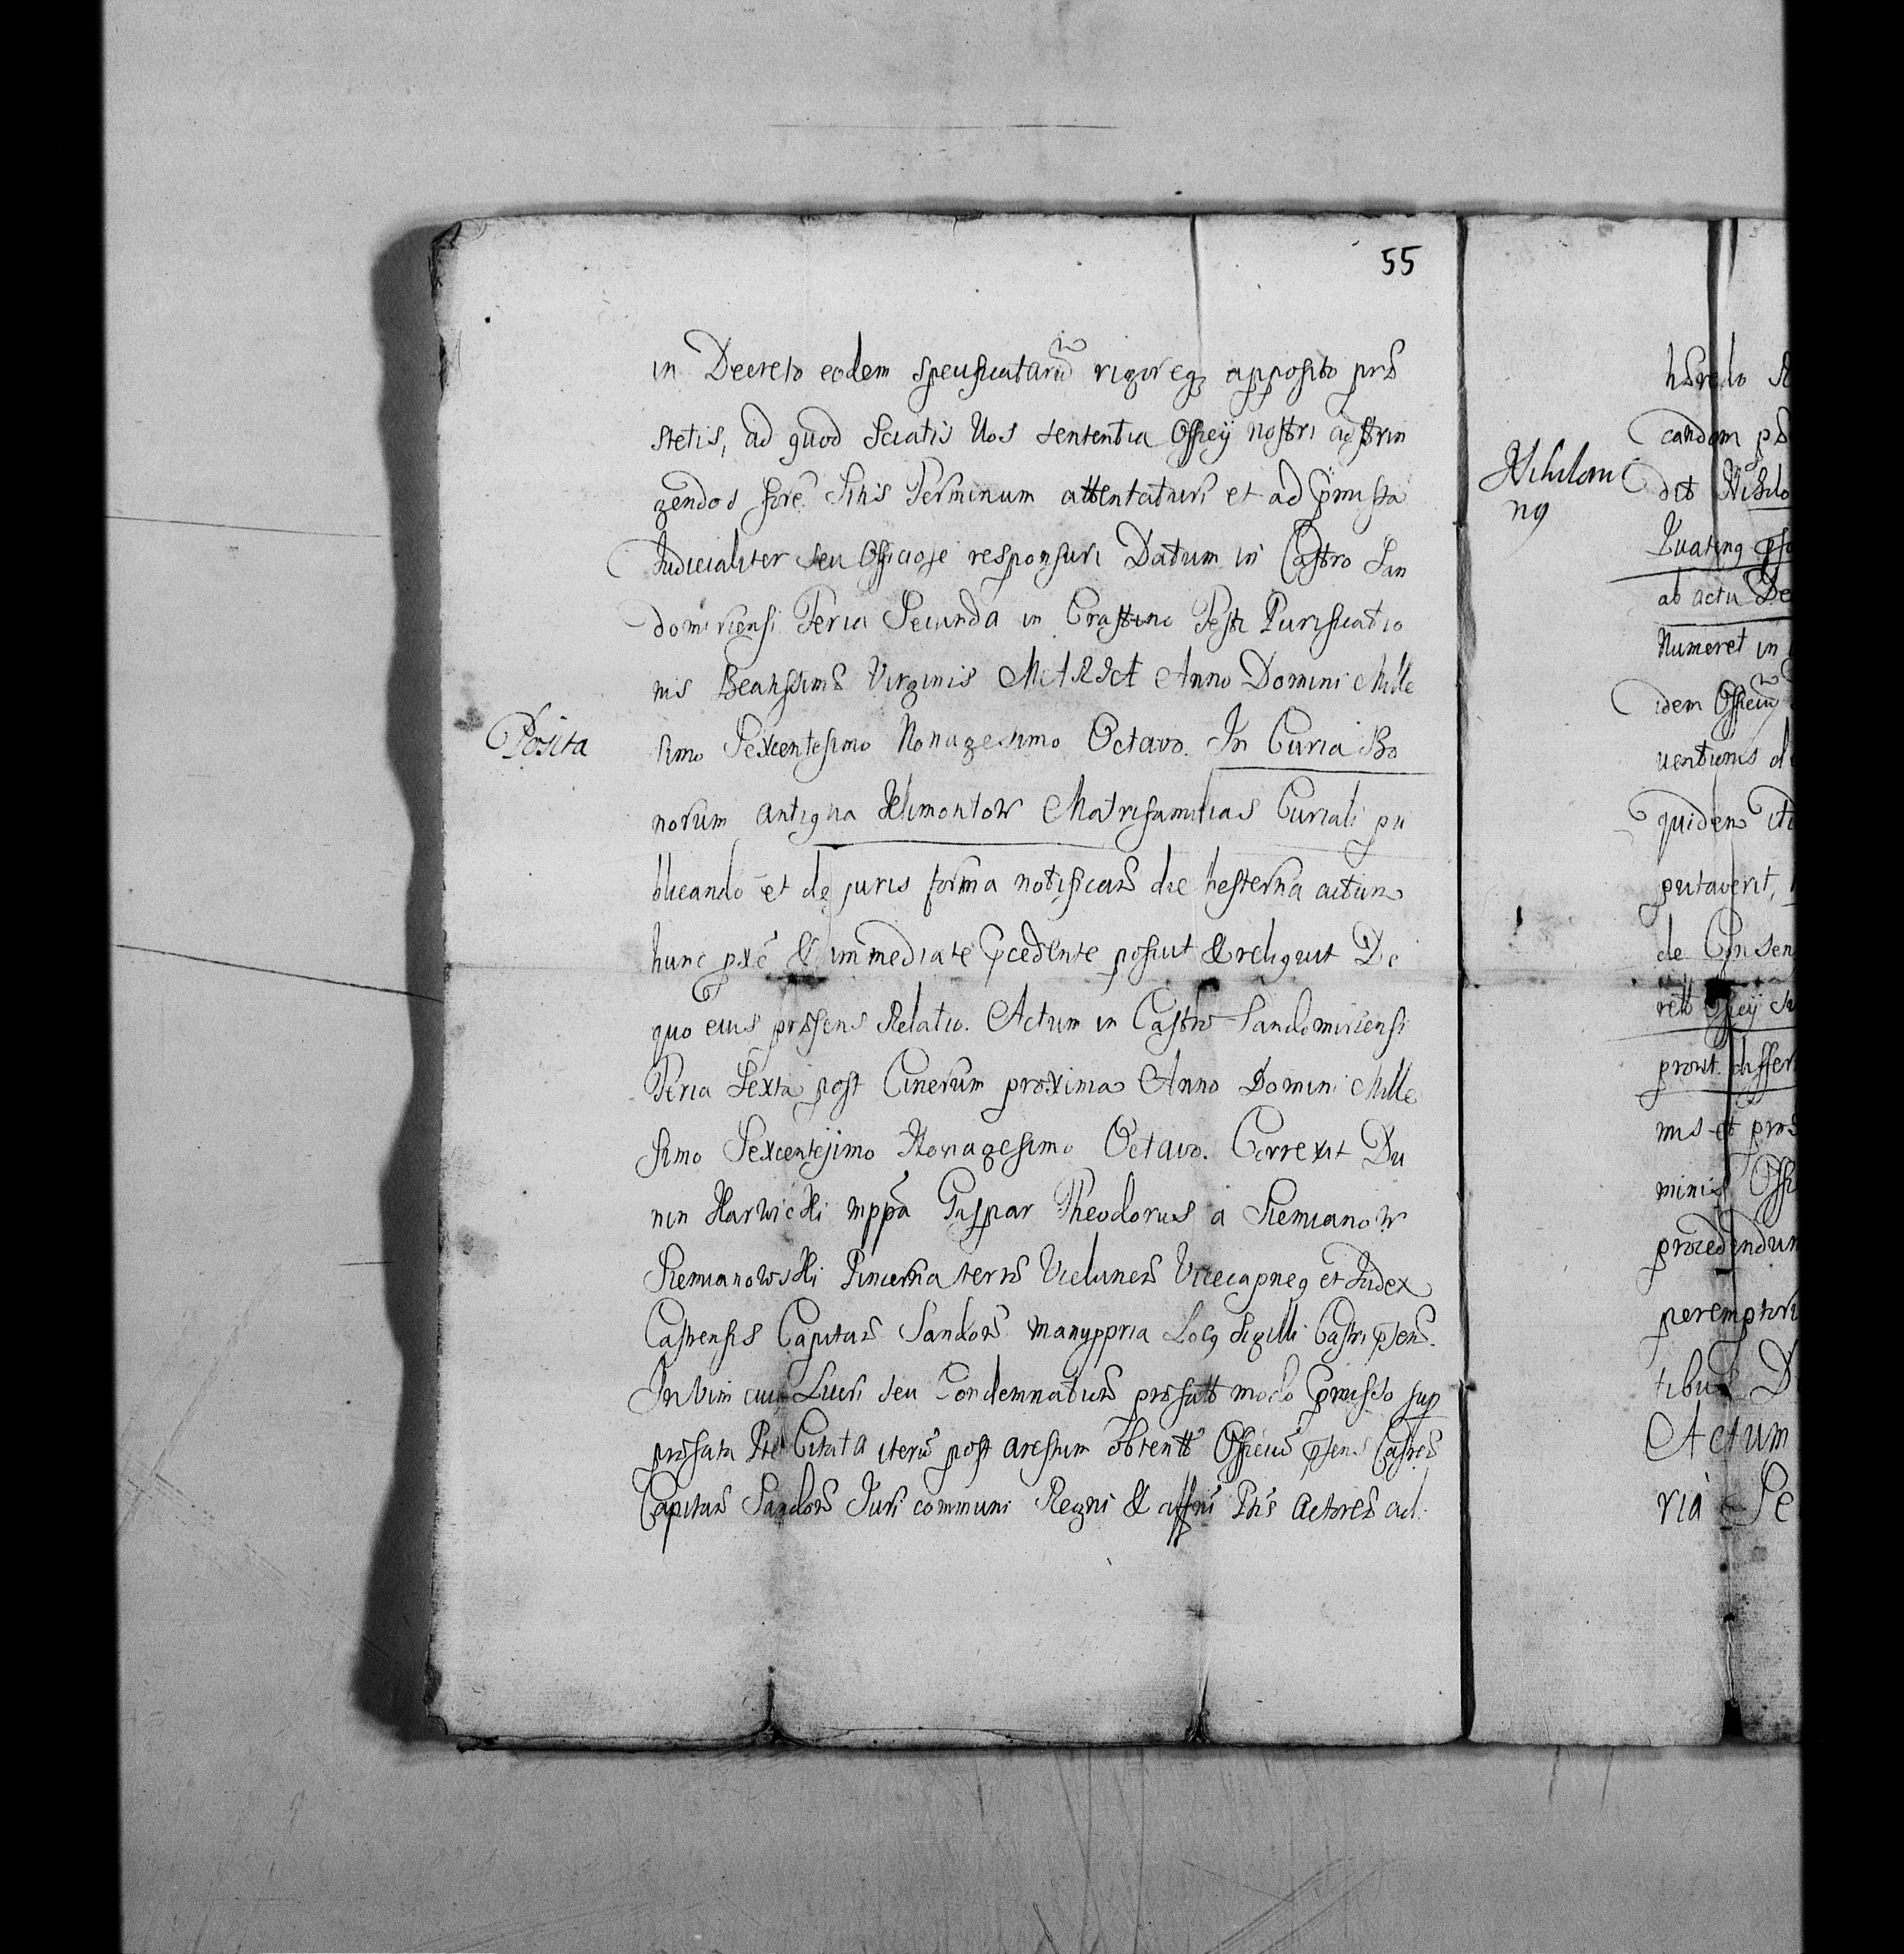 55
in Decreto eodem specificatarũ rigoreq apposito præ
stetis, ad quod Sciatis Uos sententia Officij nostri adstrin
gendos fore. Sitis Terminum attentaturi et ad præmissa
Judicialiter seu Officiose responsuri Datum in Castro San
domiriensi Feria Secunda in Crastino Festi Purificatio
nis Beatissimæ Virginis MARIÆ Anno Domini Mille
simo Sexcentesimo Nonagesimo Octavo. In Curia Bo
Posita
norum antiqua Klimontow Matrifamilias Curiali pu
blicando et de juris forma notificans die hesterna actum
hunc pxe & immediate præcedente posuit & reliquit De
quo eius præsens Relatio. Actum in Castro Sandomiriensi
Feria Sexta post Cinerum proxima Anno Domini Mille
simo Sexcentesimo Nonagesimo Octavo. Correxit Du
nin Karwicki mppa Gaspar Theodorus a Siemianow
Siemianowski Pincerna terræ Vielunens Vicecapneq et Judex
Castrensis Capitan Sandom manuppria Locq Sigilli Castri psens.
In vim cuiq Lucri seu Condemnationis præfatæ modo præmisso sup
præfata Pte Citata iterũ post arestum obtent Officiũ psens Castren
Capitan Sandom Juri communi Regni & Ptis Actoreæ ad.
Nihilomi
nq
candam
dit Nihilo
ab actu De
Numeret in
idem Officiũ
uentionis
quidem
putaverit,
de Consen
Officij
prout differ
nis et præ
minis Offi
procedendum
peremptori
tibus D
Actum
ria Se